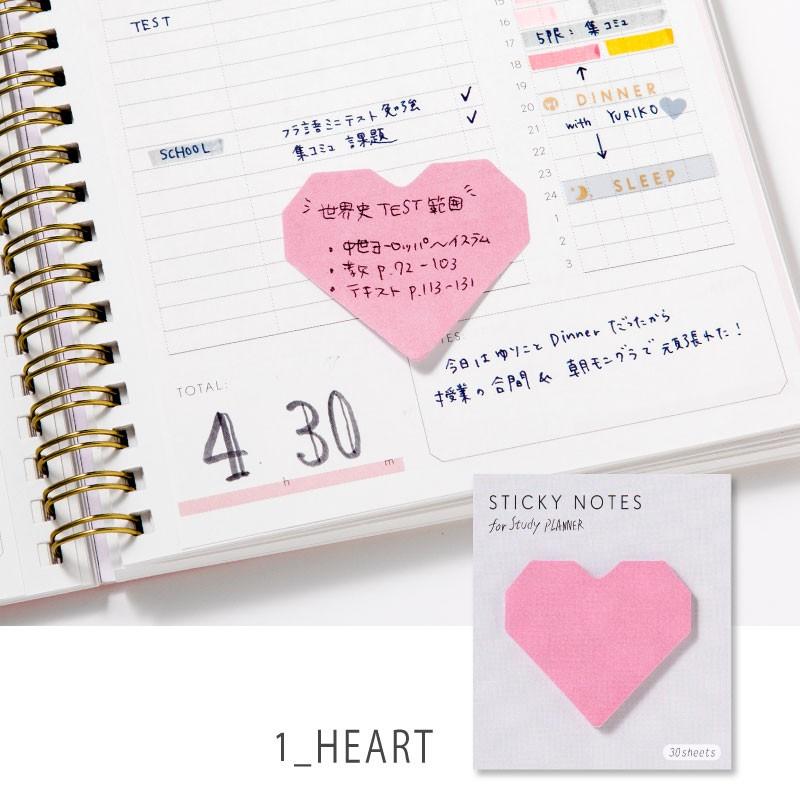 TEST
フラ語ミニテスト勉強 ✓
SCHOOL
集コミュ 課題 ✓
世界史 TEST 範囲
・中世ヨーロッパ〜イスラム
・教 p.72-103
・テキスト p.113-131
16
17
5限: 集コミュ
18
19
20
DINNER
21
with YURIKO
22
23
24
SLEEP
1
2
3
TOTAL:
4 30
h m
今日はゆりことDinnerだったから
授業の合間& 朝モニグラで頑張れた!
STICKY NOTES
for Study PLANNER
30sheets
1_HEART